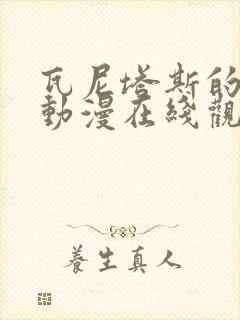 瓦尼塔斯的
動漫在綫觀
養生真人